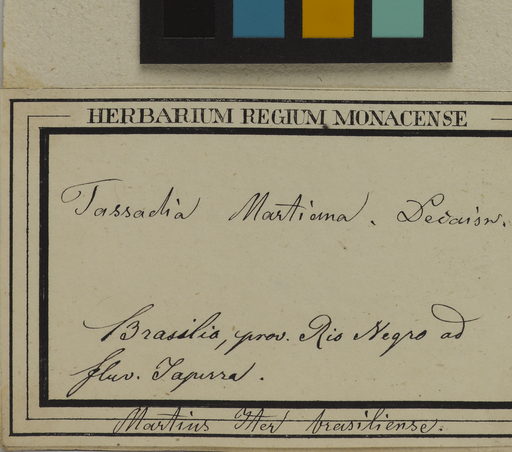 HERBARIUM REGIUM MONACENSE
Tassadia Martiana. Decaisn.
Brasilia, prov. Rio Negro ad
fluv. Japurra.
Martius Iter brasiliense.